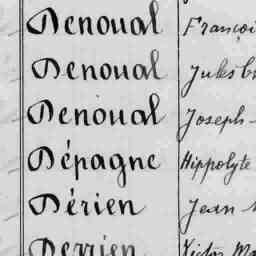 Denoual Françoi
Denoual Jules
Denoual Joseph
Dépagne Hippolyte
Dérien Jean
Derrien Victor